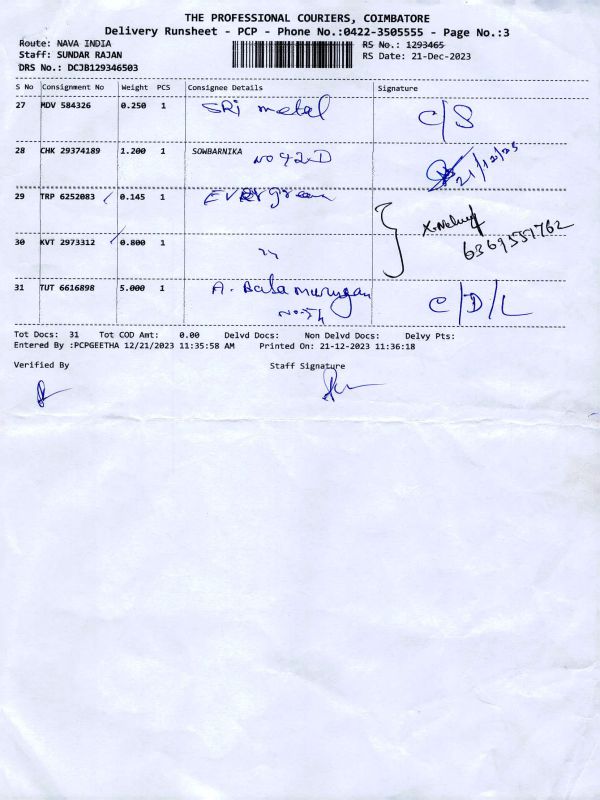 THE PROFESSIONAL COURIERS, COIMBATORE
Delivery Runsheet - PCP - Phone No.:0422-3505555 - Page No.:3
Route: NAVA INDIA
RS No.: 1293465
Staff: SUNDAR RAJAN
RS Date: 21-Dec-2023
DRS No.: DCJB129346503
S No Consignment No Weight PCS Consignee Details Signature
27 MDV 584326 0.250 1 SRi metal C/S
28 CHK 29374189 1.200 1 SOWBARNIKA
NO 42-D 21/12/23
29 TRP 6252083 0.145 1 EVERgreen
6369551762
30 KVT 2973312 0.800 1 "
31 TUT 6616898 5.000 1 A. Balamurugan C/D/L
Tot Docs: 31 Tot COD Amt: 0.00 Delvd Docs: Non Delvd Docs: Delvy Pts:
Entered By :PCPGEETHA 12/21/2023 11:35:58 AM Printed On: 21-12-2023 11:36:18
Verified By Staff Signature